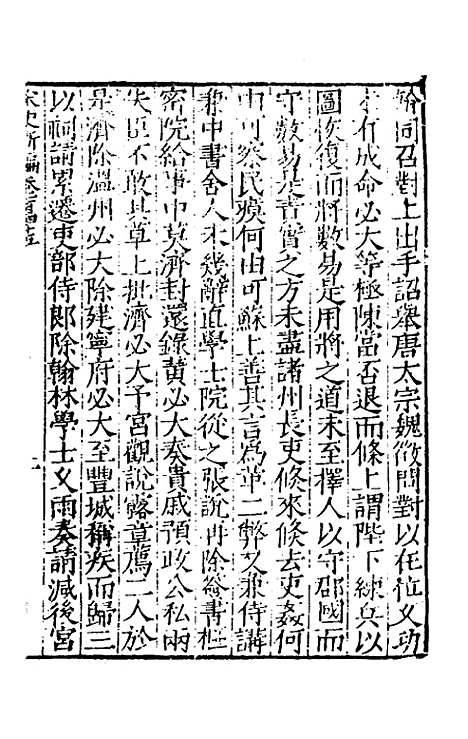 翰同召對上出手詔舉唐太宗魏徵問對以在位久功
未有成命必大等極陳當否退而條上謂陛下練兵以
圖恢復而將數易是用將之道未至擇人以守郡國而
守數易是責實之方未盡諸州長吏倏來倏去吏姦何
由可察民瘼何由可蘇上善其言為革二弊又兼侍講
兼中書舍人未幾辭直學士院從之張說再除簽書樞
密院給事中莫濟封還錄黃必大奏貴戚預政公私兩
失臣不敢具草上批濟必大予宮觀說露章薦二人於
是濟除溫州必大除建寧府必大至豐城稱疾而歸三
以祠請累遷吏部侍郎除翰林學士久雨奏請減後宮
宋史新編卷